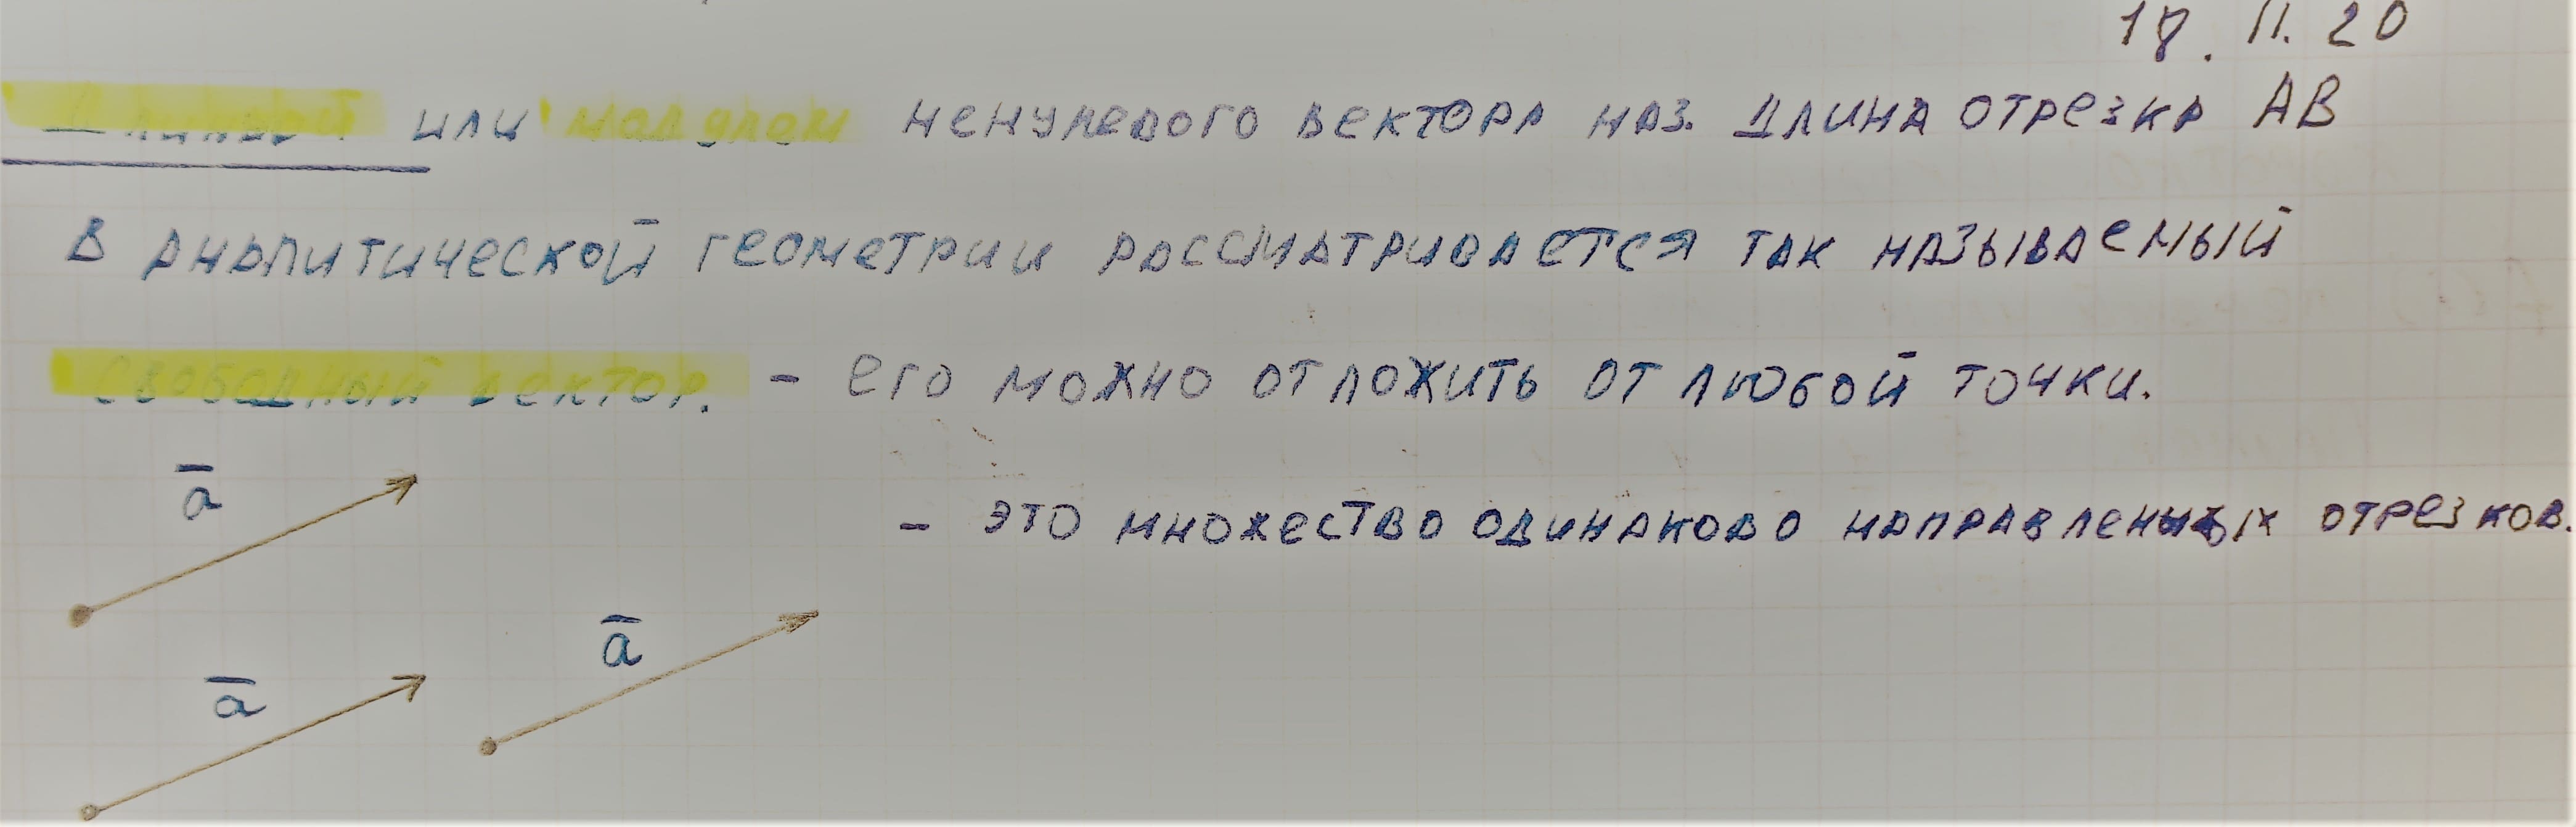 18.11.20
Длиной или модулем ненулевого вектора наз. длина отрезка AB
В аналитической геометрии рассматривается так называемый
свободный вектор. - его можно отложить от любой точки.
a̅
- это множество одинаково направленных отрезков.
a̅
a̅